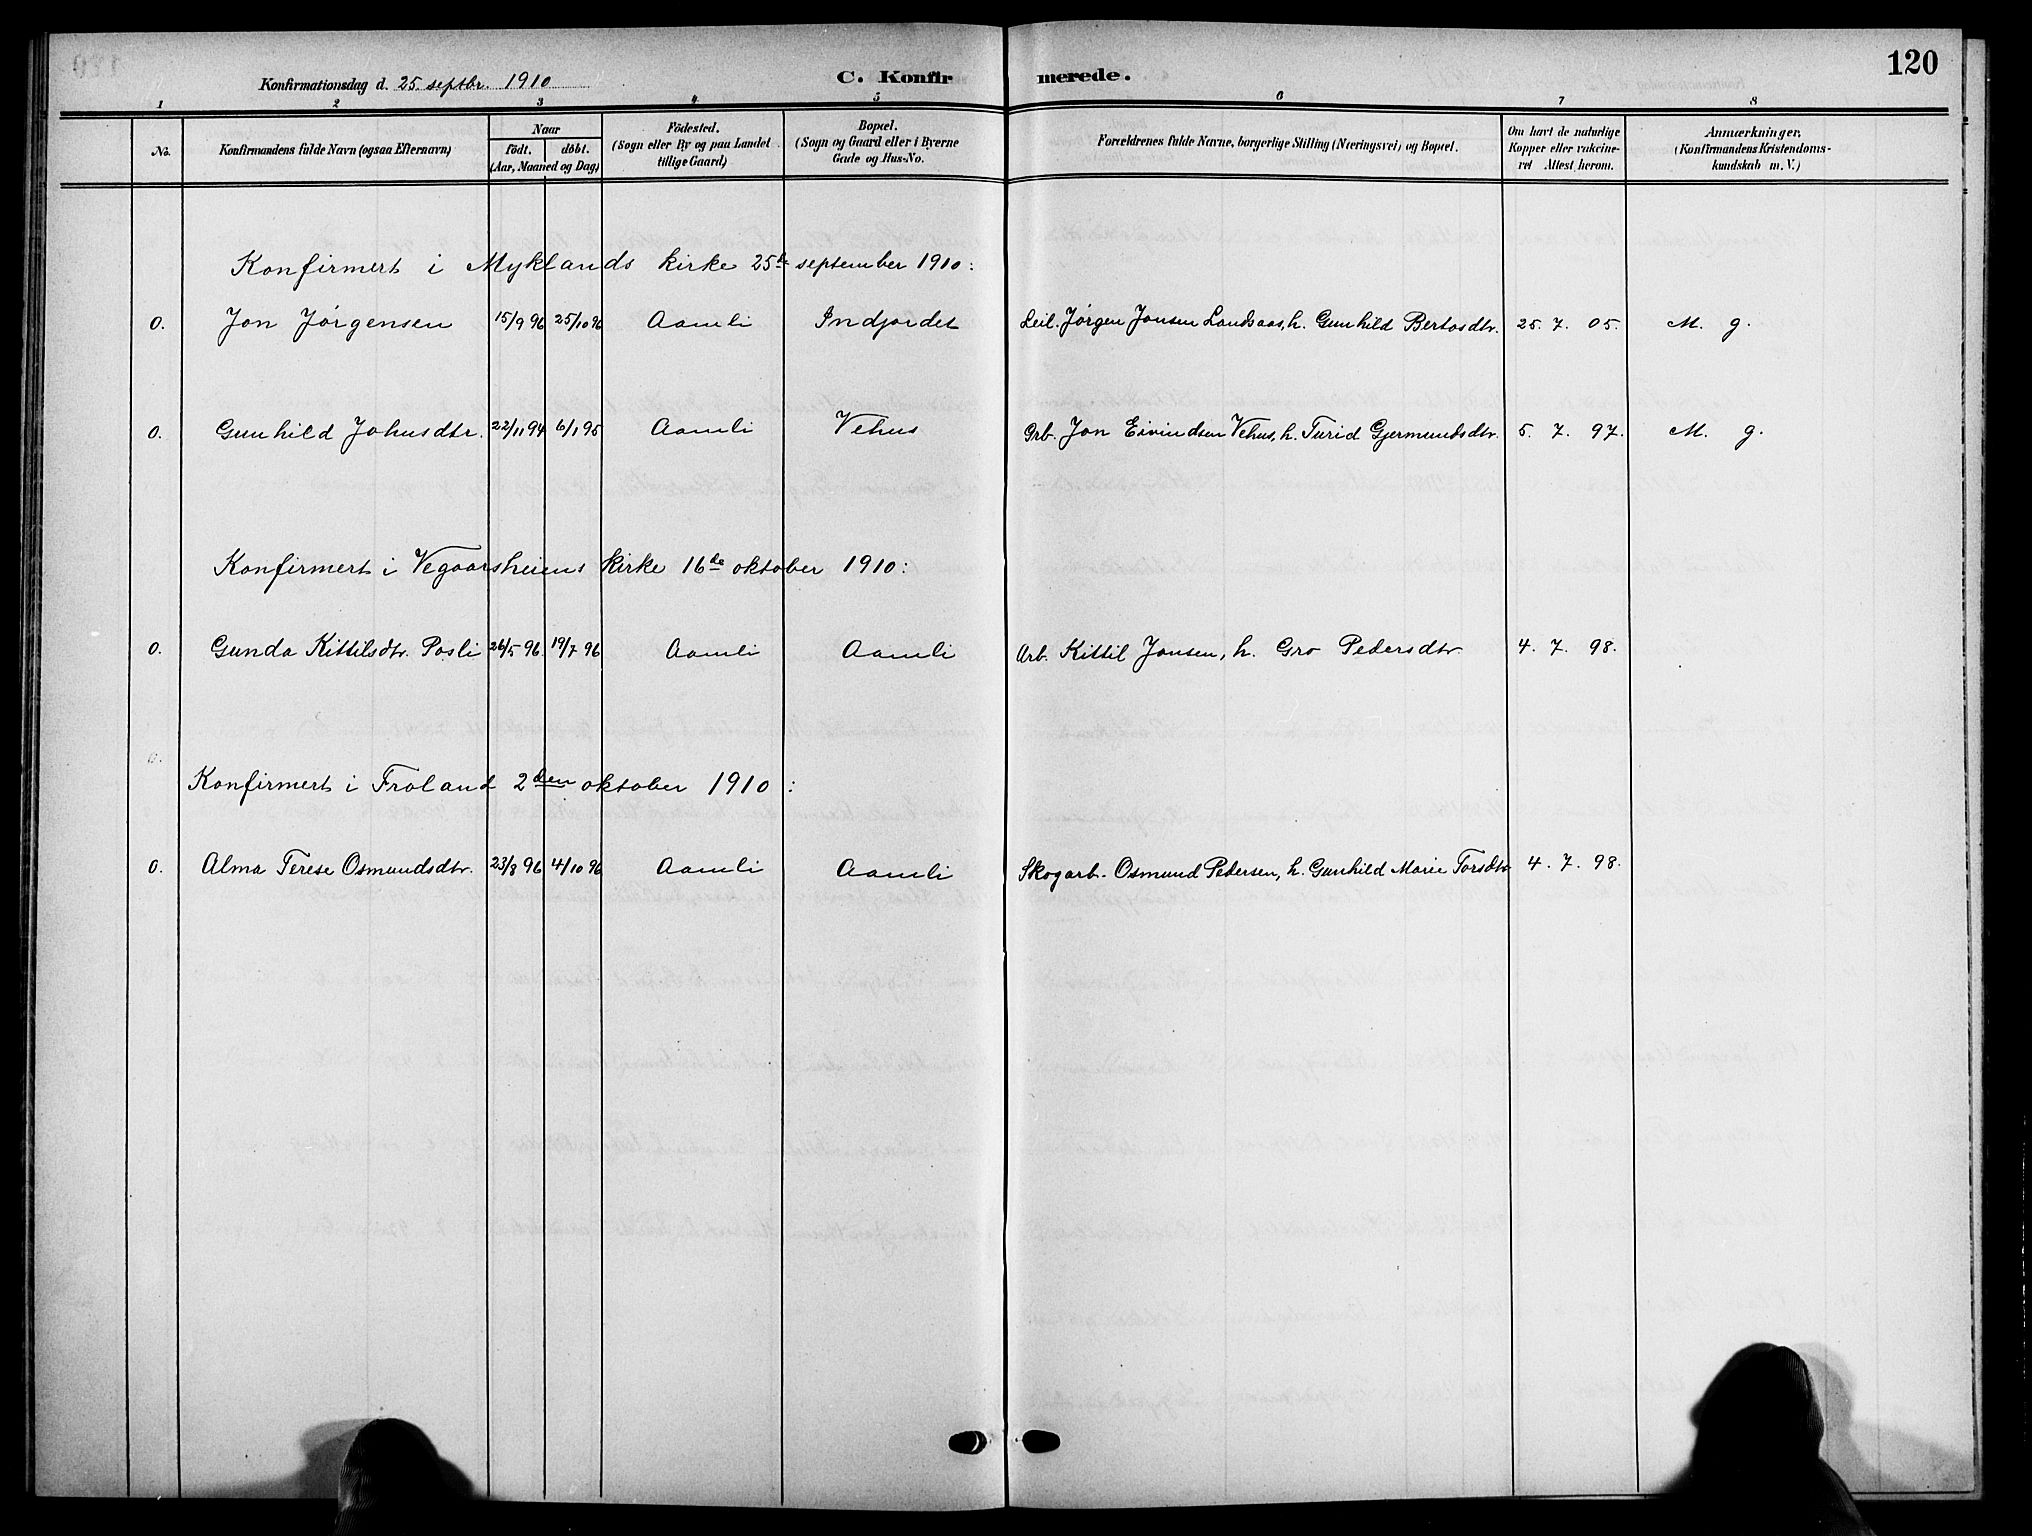 120
Konfirmationsdag d. 25. septbr. 1910
C. Konfirmerede.
1 2 3 4 5 6 7 8
No. Konfirmandens fulde Navn (ogsaa Efternavn) Naar födt. döbt. (Aar, Maaned og Dag) Födested. (Sogn eller By og paa Landet tillige Gaard) Bopæl. (Sogn og Gaard eller i Byerne Gade og Hus-No. Forældrenes fulde Navne, borgerlige Stilling (Næringsvei) og Bopæl. Om havt de naturlige Kopper eller vakcineret Attest herom. Anmærkninger, (Konfirmandens Kristendomskundskab m. V.)
Konfirmert i Myklands kirke 25de september 1910:
0. Jon Jørgensen 15/9 96 25/10 96 Aamli Indjordet Leil. Jørgen Jonsen Landsaas, h. Gunhild Bertosdtr. 25. 7. 05. M. g.
0. Gunhild Johnsdtr. 22/11 94 6/1 95 Aamli Vehus Grb. Jon Eivindsen Vehus, h. Turid Gjermundsdtr. 5. 7. 97. M. g.
Konfirmert i Vegaarsheiens kirke 16de oktober 1910:
0. Gunda Kittilsdtr. Posli 26/5 96. 19/7 96 Aamli Aamli Arb. Kittil Jonsen, h. Gro Pedersdtr. 4. 7. 98.
0.
Konfirmert i Froland 2den oktober 1910:
0. Alma Terese Osmundsdtr. 23/8 96 4/10 96 Aamli Aamli Skogarb. Osmund Pedersen, h. Gunhild Marie Torsdtr 4. 7. 98.